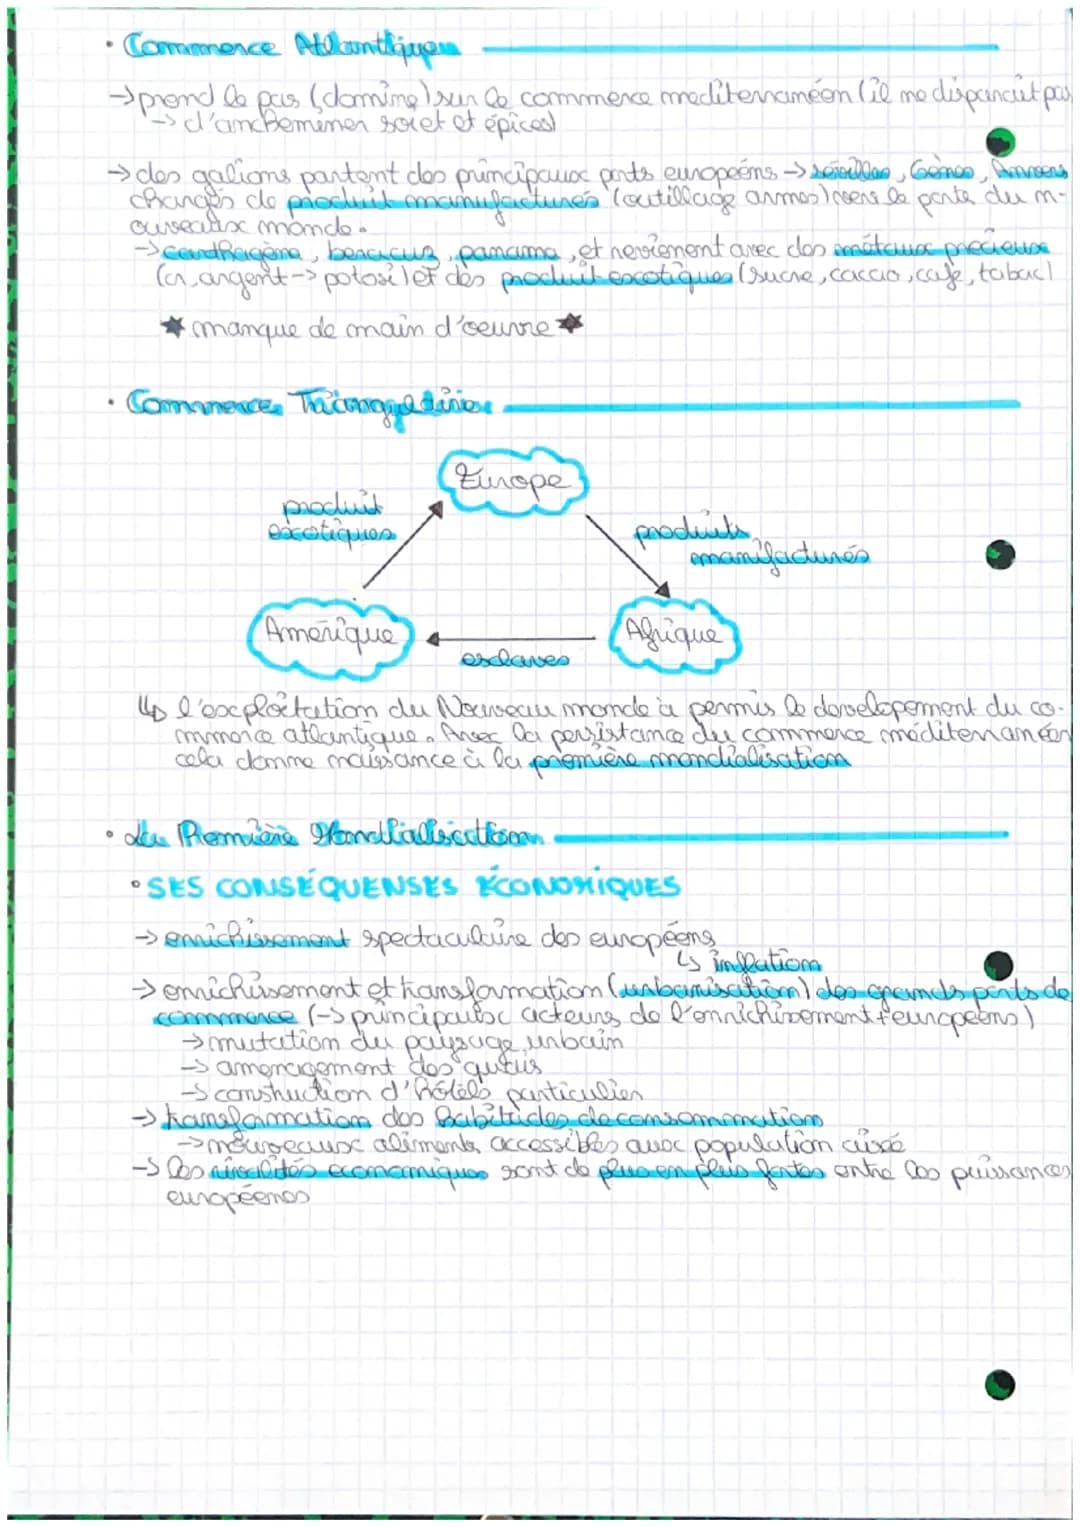 • Commerce Atlantique
→ prend le pas (domine) sur le commerce mediterranéen (il ne disparait pas
→ d'ancheminer soie et épices)
→ des galions partent des principaux ports européens → sévilles, Gènes, Anvers
changés de produit manufacturés (outillage armes) vers le ports du n-
ouveaux monde.
→ carthagène, veracruz, panama, et revienent avec des métaux precieux
(or, argent → potosi) et des produit exotiques (sucre, cacao, café, tabac)
★ manque de main d'oeuvre ★
• Commerce Triangulaire
Europe
produit
exotiques
produits
manifacturés
Amérique
Afrique
esclaves
↳ l'exploitation du Nouveau monde à permis le developement du co-
mmerce atlantique. Avec la persistance du commerce méditerranéen
cela donne naissance à la première mondialisation
• La Première Mondialisation
• SES CONSÉQUENSES ÉCONOMIQUES
→ enrichissement spectaculaire des européens
↳ inflation
→ enrichissement et transformation (urbanisation) des grands ports de
commerce (→ principaux acteurs de l'enrichissement européens)
→ mutation du paysage urbain
→ amenagement des quais
→ construction d'hôtels particulier
→ transformation des habitudes de consommation
→ nouveaux aliments accessibles aux population aisée
→ les rivalités economiques sont de plus en plus fortes entre les puissances
européenes